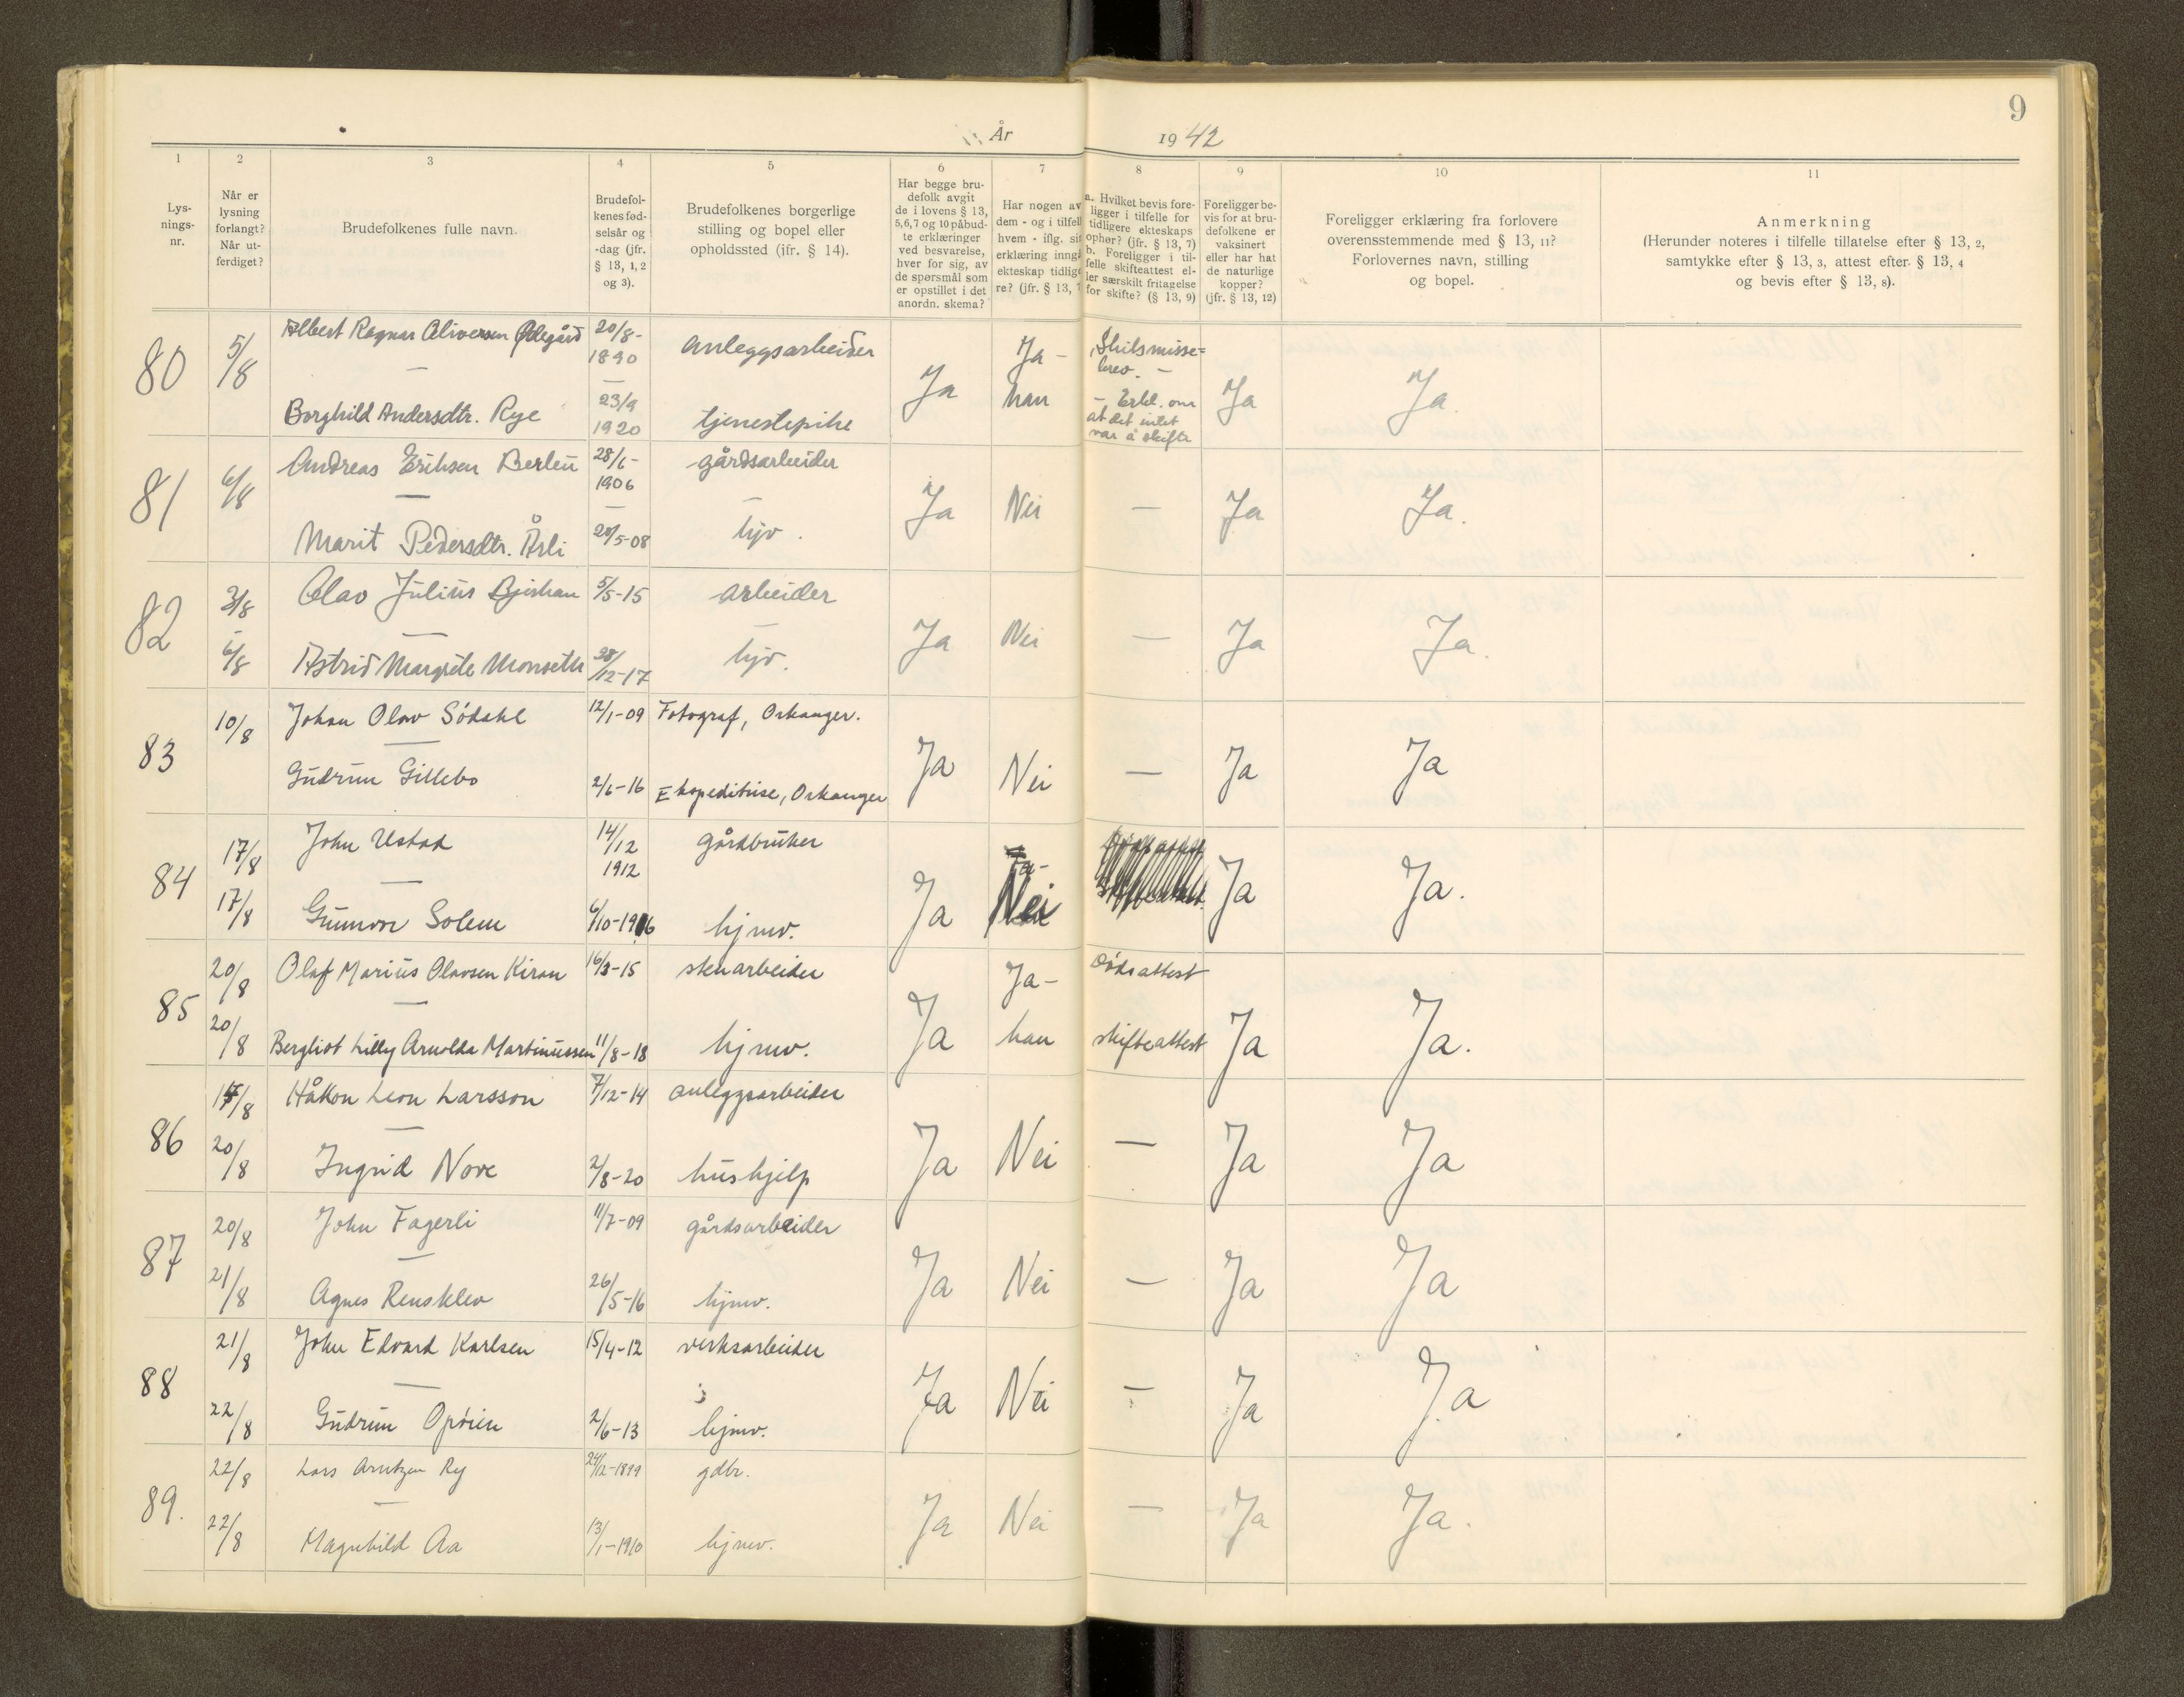 9
År 1942
1 2 3 4 5 6 7 8 9 10 11
Lys-
nings-
nr.
Når er
lysning
forlangt?
Når ut-
ferdiget?
Brudefolkenes fulle navn.
Brudefol-
kenes fød-
selsår og
-dag (jfr.
§ 13, 1, 2
og 3).
Brudefolkenes borgerlige
stilling og bopel eller
opholdssted (jfr. § 14).
Har begge bru-
defolk avgit
de i lovens § 13,
5,6,7 og 10 påbud-
te erklæringer
ved besvarelse,
hver for sig, av
de spørsmål som
er opstillet i det
anordn. skema?
Har nogen av
dem - og i tilfell
hvem - iflg. sit
erklæring inng
ekteskap tidlig
re? (jfr. § 13,
a. Hvilket bevis fore-
ligger i tilfelle for
tidligere ekteskaps
ophør? (jfr. § 13, 7)
b. Foreligger i til-
felle skifteattest el-
ler særskilt fritagelse
for skifte? (§ 13, 9)
Foreligger be-
vis for at bru-
defolkene er
vaksinert
eller har hat
de naturlige
kopper?
(jfr. § 13, 12)
Foreligger erklæring fra forlovere
overensstemmende med § 13, 11?
Forlovernes navn, stilling
og bopel.
Anmerkning
(Herunder noteres i tilfelle tillatelse efter § 13, 2,
samtykke efter § 13, 3, attest efter § 13, 4
og bevis efter § 13, 8).
80 5/8 Albert Ragnar Oliversen Ødegård 20/8-1890 anleggsarbeider Ja Ja - han Skilsmisse=
brev. -
- Erkl. om
at det intet
var å skifte Ja Ja.
Borghild Andersdtr. Rye 23/9 1920 tjenestepike
81 6/8 Andreas Eriksen Berlen 28/6-1906 gårdsarbeider Ja Nei — Ja Ja.
Marit Pedersdtr. Åsli 20/5-08 hjv.
82 3/8 Olav Julius 5/5-15 arbeider Ja Nei — Ja Ja.
6/8 Astrid Margrete Monseth 28/12-17 hjv.
83 10/8 Johan Olav Södahl 12/1-09 Fotograf, Orkanger. Ja Nei — Ja Ja
Gudrun Gillebo 2/6-16 Ekspeditrise, Orkanger
84 17/8 John Ustad 14/12 1912 gårdbruker Ja Nei Ja Ja.
17/8 Gunnvor Solem 6/10-1916 hjmv.
85 20/8 Olaf Marius Olavsen Kiran 16/3-15 stenarbeider Ja Ja - han Dödsattest Ja Ja.
20/8 Bergliot Lilly Arnolda Martinussen 11/8-18 hjmv. skifteattest
86 17/8 Håkon Leon Larsson 7/12-14 anleggsarbeider Ja Nei — Ja Ja
20/8 Ingrid Nove 2/8-20 hushjelp
87 20/8 John Fagerli 11/7-09 gårdsarbeider Ja Nei — Ja Ja
21/8 Agnes Rensklev 26/5-16 hjmv.
88 21/8 John Edvard Karlsen 15/4-12 verksarbeider Ja Nei - Ja Ja
22/8 Gudrun Opöien 2/6-13 hjmv.
89. 22/8 Lars Arntzen Ry 24/12-1899 gdbr. Ja Nei — Ja Ja.
22/8 Magnhild Aa 13/1-1910 hjmv.